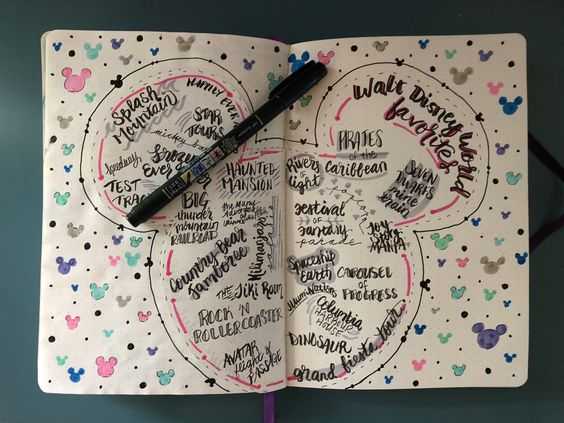 Splash
Mountain
HAPPILY EVER
STAR
TOURS
mickey
Speedway
Frozen
Ever
TEST
TRAC
HAUNTED
MANSION
BIG
thunder
mountain
RAILROAD
Country Bear
Jamboree
Kilimanjaro
THE Tiki Room
ROCK 'N
ROLLERCOASTER
AVATAR
flight of
PASSAGE
Walt Disney World
favorites
PIRATES
of the
Caribbean
Rivers
of
light
SEVEN
DWARFS
mine
train
festival
of
fantasy
parade
Spaceship
Earth
CAROUSEL
of
PROGRESS
Columbia
HARBOUR
HOUSE
DINOSAUR
grand fiesta tour